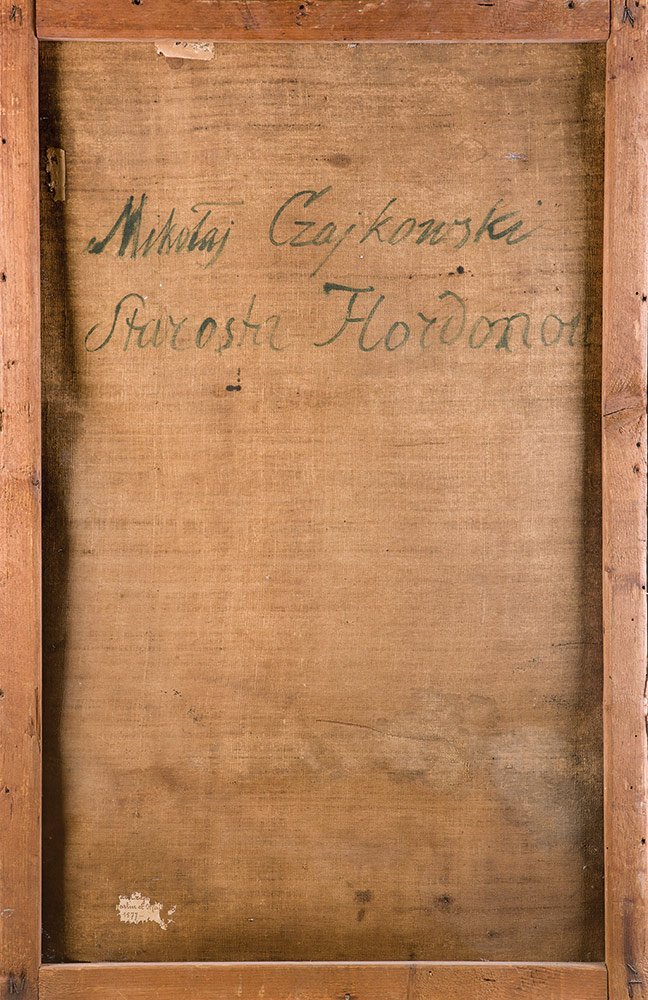 Mikołaj Czajkowski
Starosta Hordonou
1877